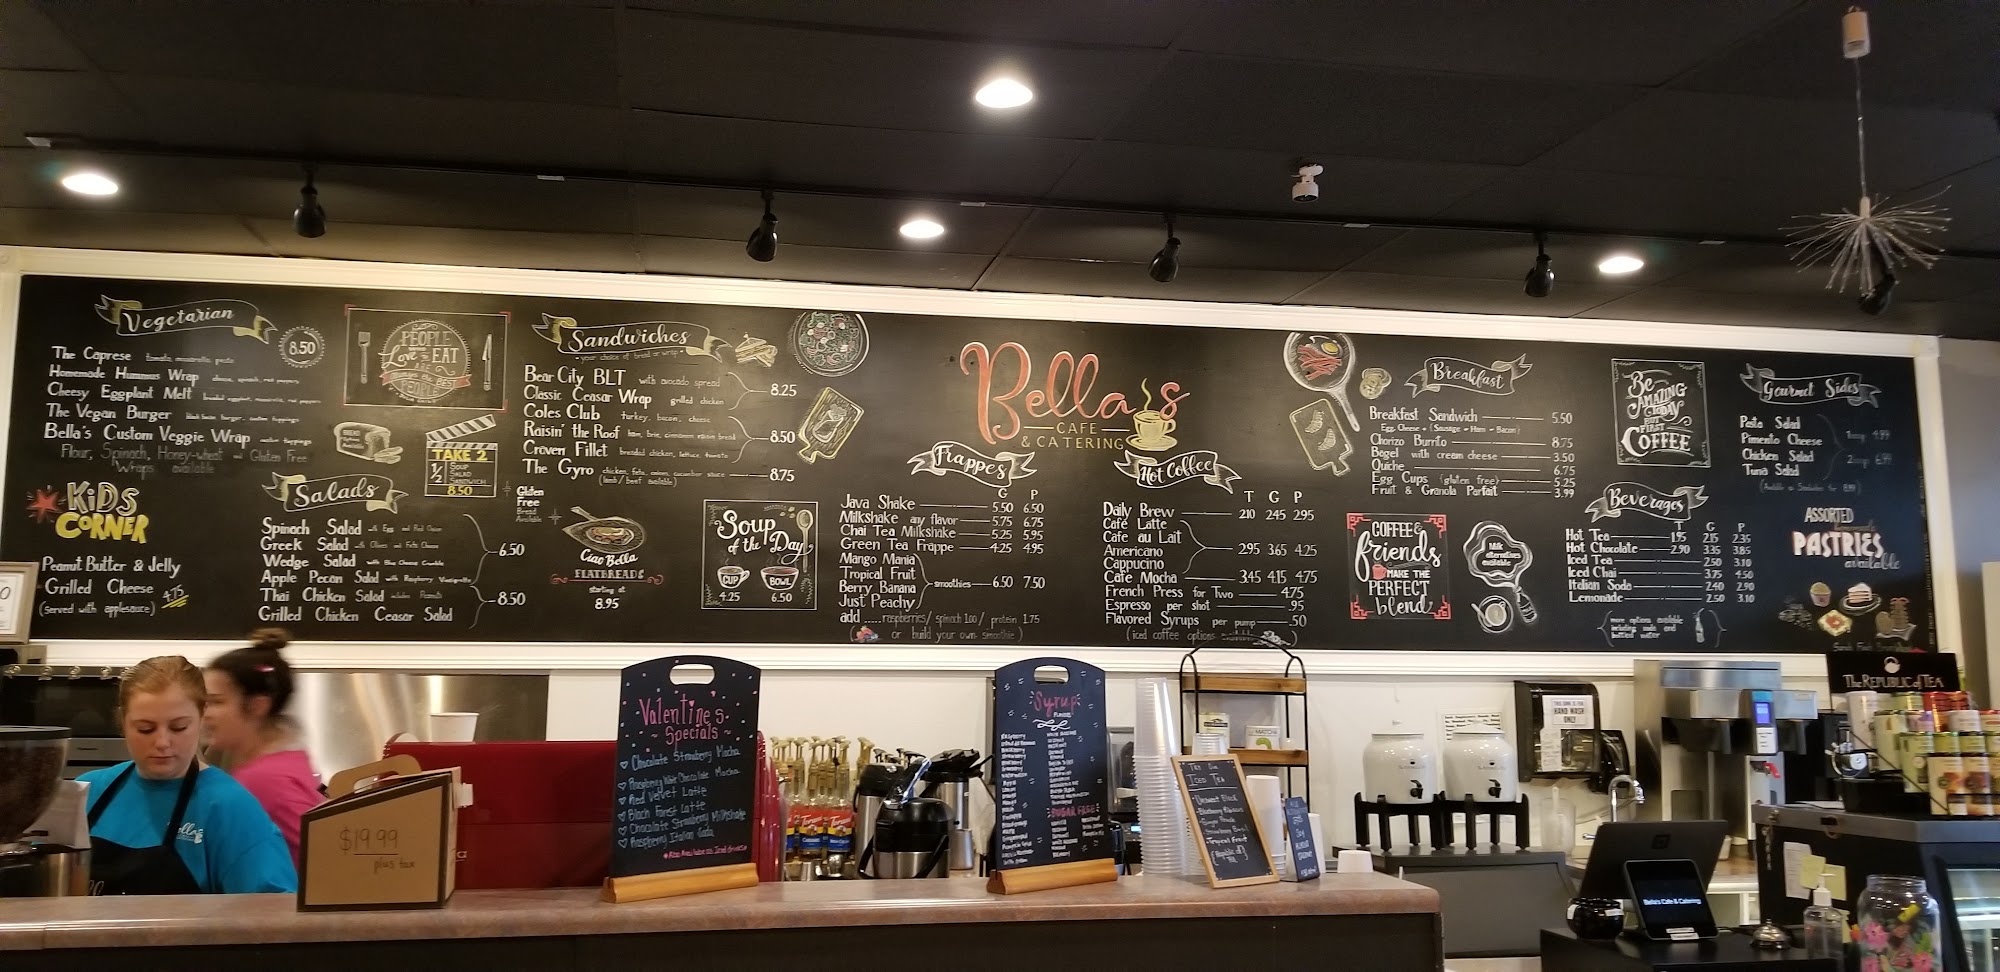 Vegetarian
8.50
The Caprese tomato, mozzarella, pesto
Homemade Hummus Wrap cheese, spinach, red peppers
Cheesy Eggplant Melt breaded eggplant, mozzarella, red peppers
The Vegan Burger black bean burger, custom toppings
Bella's Custom Veggie Wrap custom toppings
Flour, Spinach, Honey-wheat and Gluten Free
Wraps available
KiDS
CORNER
Peanut Butter & Jelly
Grilled Cheese
(served with applesauce) 4.75
PEOPLE
Love to EAT
ARE
always the BEST
PEOPLE
TAKE 2
1/2 SOUP
SALAD
SANDWICH
8.50
Salads
Spinach Salad with Egg and Red Onion
Greek Salad with Olives and Feta Cheese
Wedge Salad with Blue Cheese Crumble
6.50
Apple Pecan Salad with Raspberry Vinaigrette
Thai Chicken Salad includes Peanuts
Grilled Chicken Ceasar Salad
8.50
Sandwiches
your choice of bread or wrap
Bear City BLT with avocado spread
Classic Ceasar Wrap grilled chicken
8.25
Coles Club turkey, bacon, cheese
Raisin' the Roof ham, brie, cinnamon raisin bread
Craven Fillet breaded chicken, lettuce, tomato
8.50
The Gyro chicken, feta, onions, cucumber sauce 8.75
(lamb/beef available)
Gluten
Free
Bread
Available
Ciao Bella
FLATBREADS
starting at
8.95
Soup
of the Day
CUP BOWL
4.25 6.50
Bella's
CAFE
& CATERING
Frappes
G P
Java Shake 5.50 6.50
Milkshake any flavor 5.75 6.75
Chai Tea Milkshake 5.25 5.95
Green Tea Frappe 4.25 4.95
Mango Mania
Tropical Fruit
Berry Banana
Just Peachy
smoothies 6.50 7.50
add ..... raspberries/ spinach 1.00 / protein 1.75
( or build your own smoothie )
Hot Coffee
T G P
Daily Brew 2.10 2.45 2.95
Café Latte
Cafe au Lait
Americano
Cappucino
2.95 3.65 4.25
Cafe Mocha 3.45 4.15 4.75
French Press for Two 4.75
Espresso per shot .95
Flavored Syrups per pump .50
(iced coffee options available)
Breakfast
Breakfast Sandwich 5.50
Egg, Cheese + (Sausage - Ham - Bacon)
Chorizo Burrito 8.75
Bagel with cream cheese 3.50
Quiche 6.75
Egg Cups (gluten free) 5.25
Fruit & Granola Parfait 3.99
COFFEE &
friends
MAKE THE
PERFECT
blend
Milk
alternatives
available
Be
AMAZING
TODAY
BUT FIRST
COFFEE
Beverages
T G P
Hot Tea 1.95 2.15 2.35
Hot Chocolate 2.90 3.35 3.85
Iced Tea 2.50 3.10
Iced Chai 3.75 4.50
Italian Soda 2.40 2.90
Lemonade 2.50 3.10
more options available
including soda and
bottled water
Gourmet Sides
Pasta Salad
Pimento Cheese
Chicken Salad
Tuna Salad
1 scoop 4.99
2 scoop 6.99
(Available as Sandwiches for 8.99)
ASSORTED
PASTRIES
available
$19.99
plus tax
Valentine's
Specials
Chocolate Strawberry Mocha
Raspberry White Chocolate Mocha
Red Velvet Latte
Black Forest Latte
Chocolate Strawberry Milkshake
Raspberry Italian Soda
Syrup
FLAVORS
SUGAR FREE
ICED TEA
Bella's Cafe & Catering
THE REPUBLIC of TEA
HAND WASH
ONLY
MATCHA